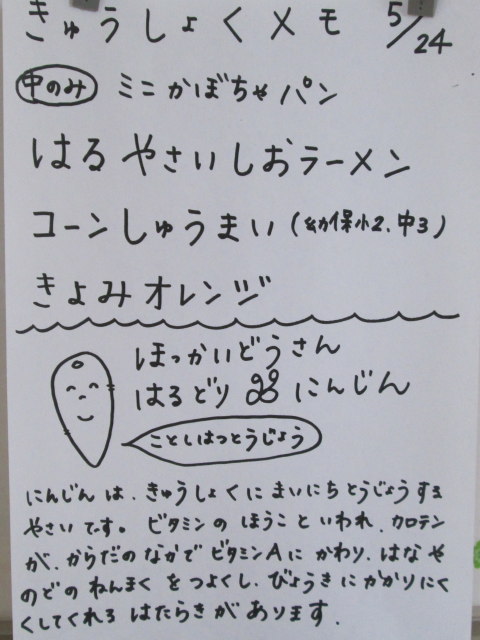 きゅうしょくメモ 5/24
中のみ ミニかぼちゃパン
はるやさいしおラーメン
コーンしゅうまい(幼保小2、中3)
きよみオレンジ
ほっかいどうさん
はるどり にんじん
ことしはつとうじょう
にんじんは、きゅうしょくにまいにちとうじょうする
やさいです。ビタミンのほうこといわれ、カロテン
が、からだのなかでビタミンAにかわり、はなや
のどのねんまくをつよくし、びょうきにかかりにく
くしてくれるはたらきがあります。